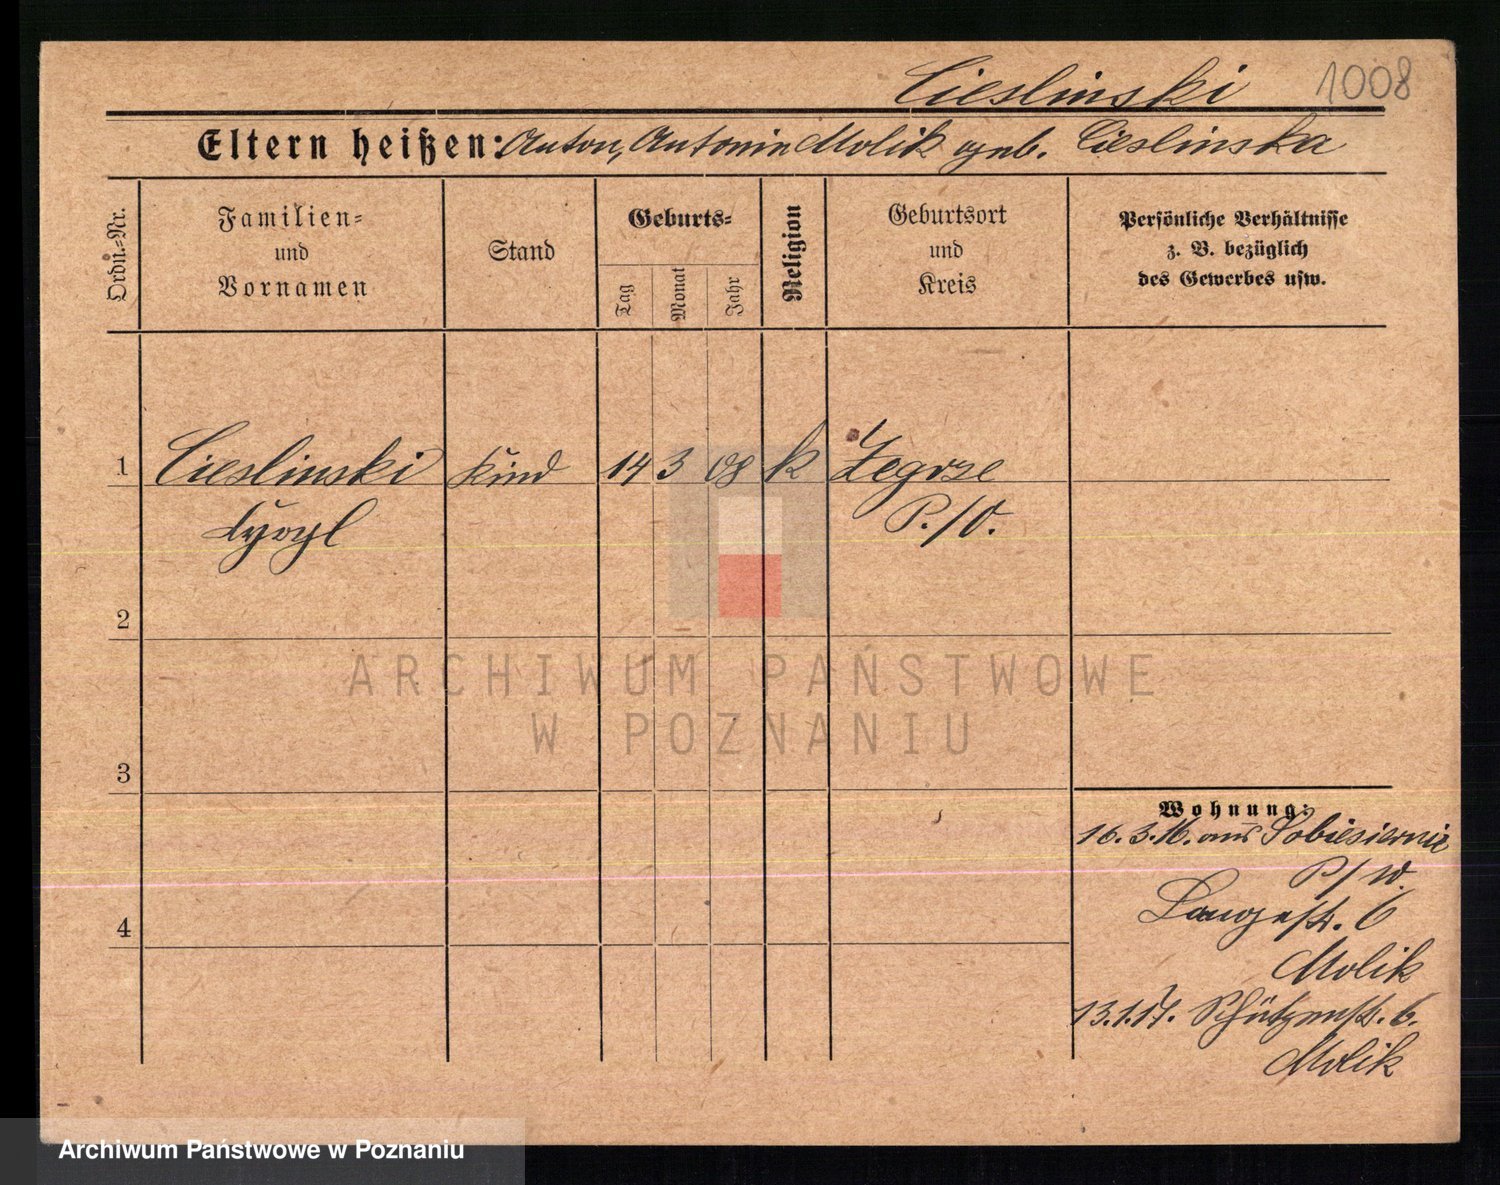 Cieslinski 1008
Eltern heißen: Anton, Antonin Molik geb. Cieslinska
Ordn.=Nr.
Familien=
und
Vornamen
Stand
Geburts=
Tag
Monat
Jahr
Religion
Geburtsort
und
Kreis
Persönliche Verhältnisse
z. B. bezüglich
des Gewerbes usw.
1 Cieslinski Kind 14 3 08 k Zegrze
P./O.
2
3
4
Wohnung:
16.3.16. aus Sobiesiernie
P/W.
Langestr. 6
Molik
13.1.17. Schützenstr. 6.
Molik
ARCHIWUM PAŃSTWOWE
W POZNANIU
Archiwum Państwowe w Poznaniu